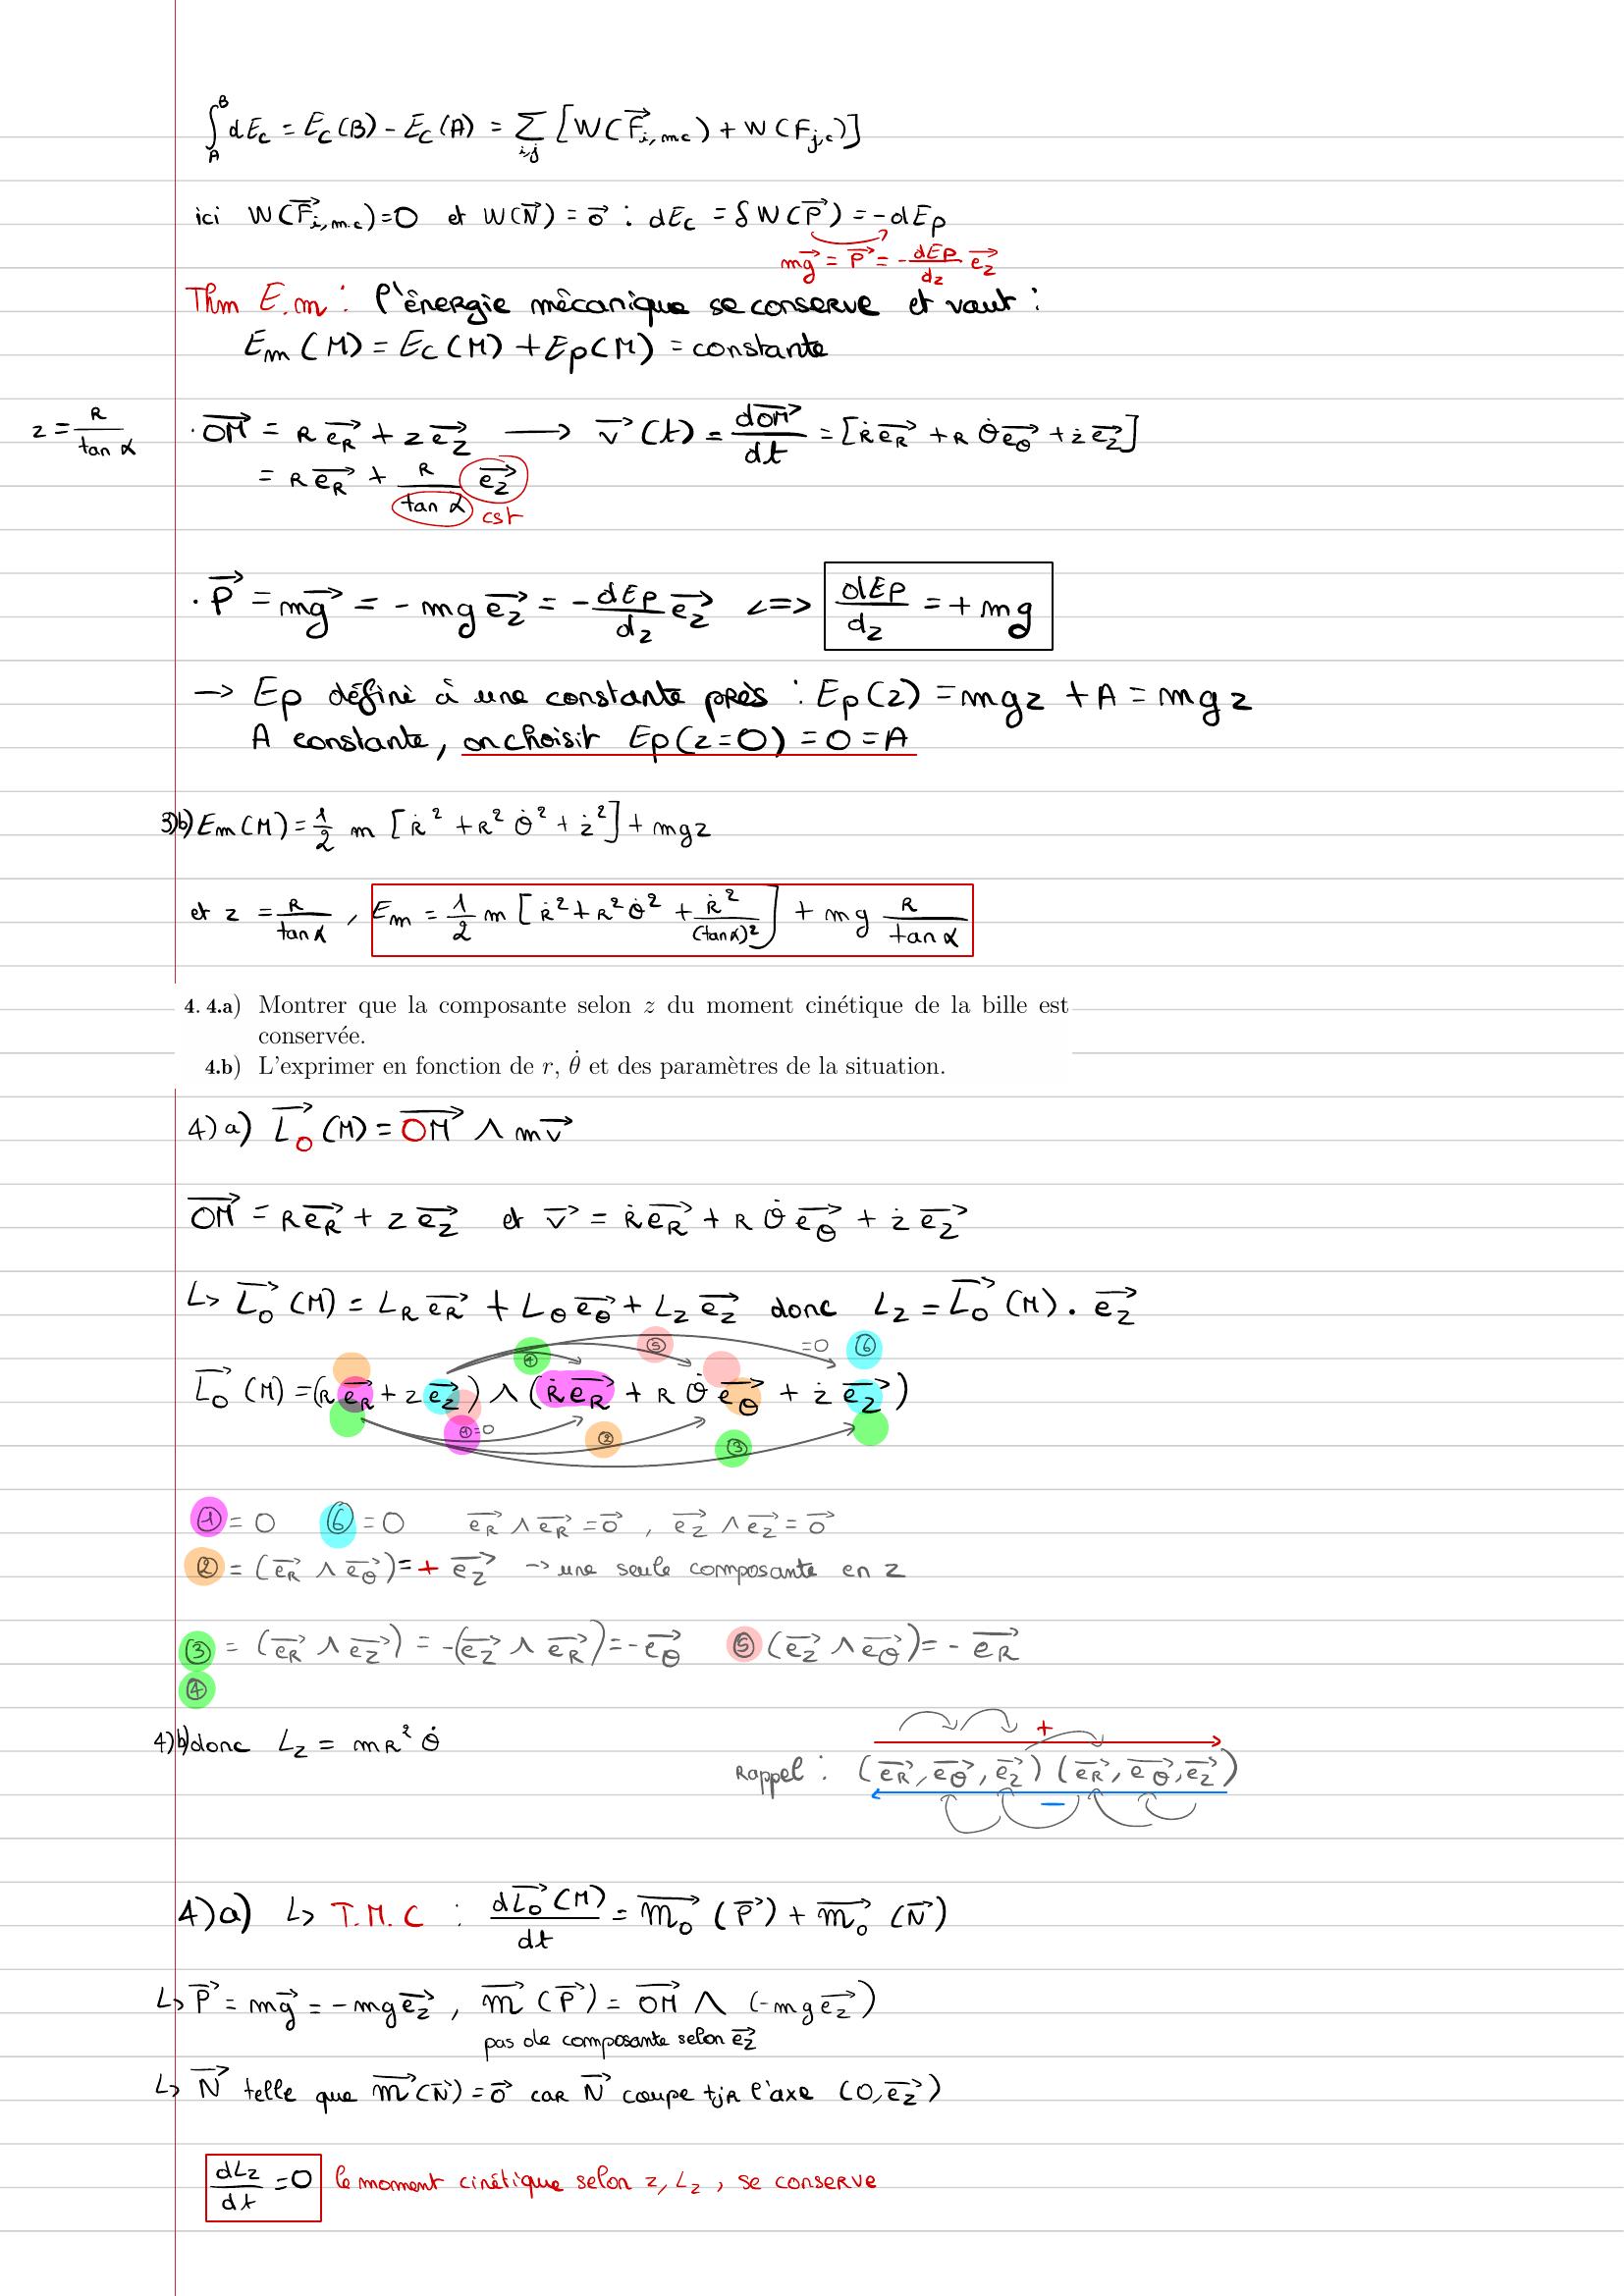 ∫_A^B dEc = Ec(B) - Ec(A) = Σ_{i,j} [W(\vec{F}_{i,mc}) + W(F_{j,c})]
ici W(\vec{F}_{i,m.c}) = 0 et W(\vec{N}) = \vec{0} : dEc = δW(\vec{P}) = -dEp
m\vec{g} = \vec{P} = -\frac{dEp}{dz} \vec{e_z}
Thm E.m : l'énergie mécanique se conserve et vaut :
Em(M) = Ec(M) + Ep(M) = constante
z = \frac{R}{tan α}
· \vec{OM} = R\vec{e_R} + z\vec{e_z} ⟶ \vec{v}(t) = \frac{d\vec{OM}}{dt} = [Ṙ\vec{e_R} + Rθ̇\vec{e_θ} + ż\vec{e_z}]
= R\vec{e_R} + \frac{R}{tan α} \vec{e_z}
cst
· \vec{P} = m\vec{g} = -mg\vec{e_z} = -\frac{dEp}{dz}\vec{e_z} <=> \frac{dEp}{dz} = +mg
→ Ep défini à une constante près : Ep(z) = mgz + A = mgz
A constante, on choisit Ep(z=0) = 0 = A
3)b) Em(M) = \frac{1}{2} m [Ṙ² + R²θ̇² + ż²] + mgz
et z = \frac{R}{tan α}, Em = \frac{1}{2} m [Ṙ² + R²θ̇² + \frac{Ṙ²}{(tan α)²}] + mg \frac{R}{tan α}
4. 4.a) Montrer que la composante selon z du moment cinétique de la bille est
conservée.
4.b) L'exprimer en fonction de r, θ̇ et des paramètres de la situation.
4)a) \vec{L_O}(M) = \vec{OM} ∧ m\vec{v}
\vec{OM} = R\vec{e_R} + z\vec{e_z} et \vec{v} = Ṙ\vec{e_R} + Rθ̇\vec{e_θ} + ż\vec{e_z}
L> \vec{L_O}(M) = L_R\vec{e_R} + L_θ\vec{e_θ} + L_z\vec{e_z} donc L_z = \vec{L_O}(M) . \vec{e_z}
④ ⑤ =0 ⑥
\vec{L_O}(M) = (R\vec{e_R} + z\vec{e_z}) ∧ (Ṙ\vec{e_R} + Rθ̇\vec{e_θ} + ż\vec{e_z})
①=0 ② ③
① = 0 ⑥ = 0 \vec{e_R} ∧ \vec{e_R} = \vec{0}, \vec{e_z} ∧ \vec{e_z} = \vec{0}
② = (\vec{e_R} ∧ \vec{e_θ}) = + \vec{e_z} → une seule composante en z
③ = (\vec{e_R} ∧ \vec{e_z}) = -(\vec{e_z} ∧ \vec{e_R}) = -\vec{e_θ} ⑤ (\vec{e_z} ∧ \vec{e_θ}) = -\vec{e_R}
④
4)b) donc L_z = mR²θ̇
+
Rappel : (\vec{e_R}, \vec{e_θ}, \vec{e_z}) (\vec{e_R}, \vec{e_θ}, \vec{e_z})
−
4)a) L> T.M.C : \frac{d\vec{L_O}(M)}{dt} = \vec{m_o}(\vec{P}) + \vec{m_o}(\vec{N})
L> \vec{P} = m\vec{g} = -mg\vec{e_z}, \vec{m}(\vec{P}) = \vec{OM} ∧ (-mg\vec{e_z})
pas de composante selon \vec{e_z}
L> \vec{N} telle que \vec{m}(\vec{N}) = \vec{0} car \vec{N} coupe tjr l'axe (O, \vec{e_z})
\frac{dL_z}{dt} = 0 le moment cinétique selon z, L_z, se conserve